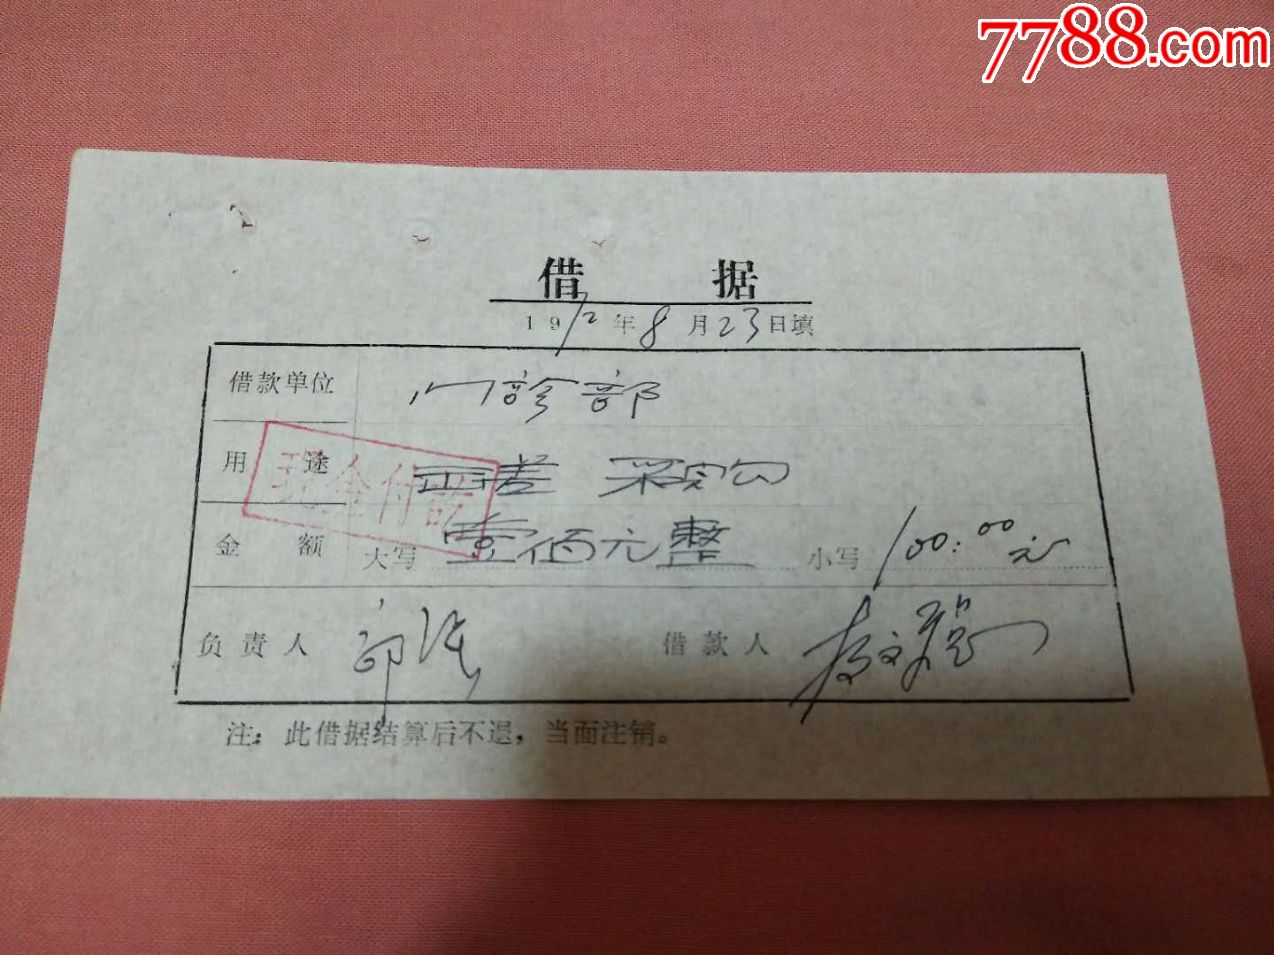 7788.com
借据
19 年8月23日填
借款单位 门診部
用途 采购
现金付讫
金额 大写 壹佰元整 小写 100:00元
负责人 郭
借款人 文
注：此借据结算后不退，当面注销。